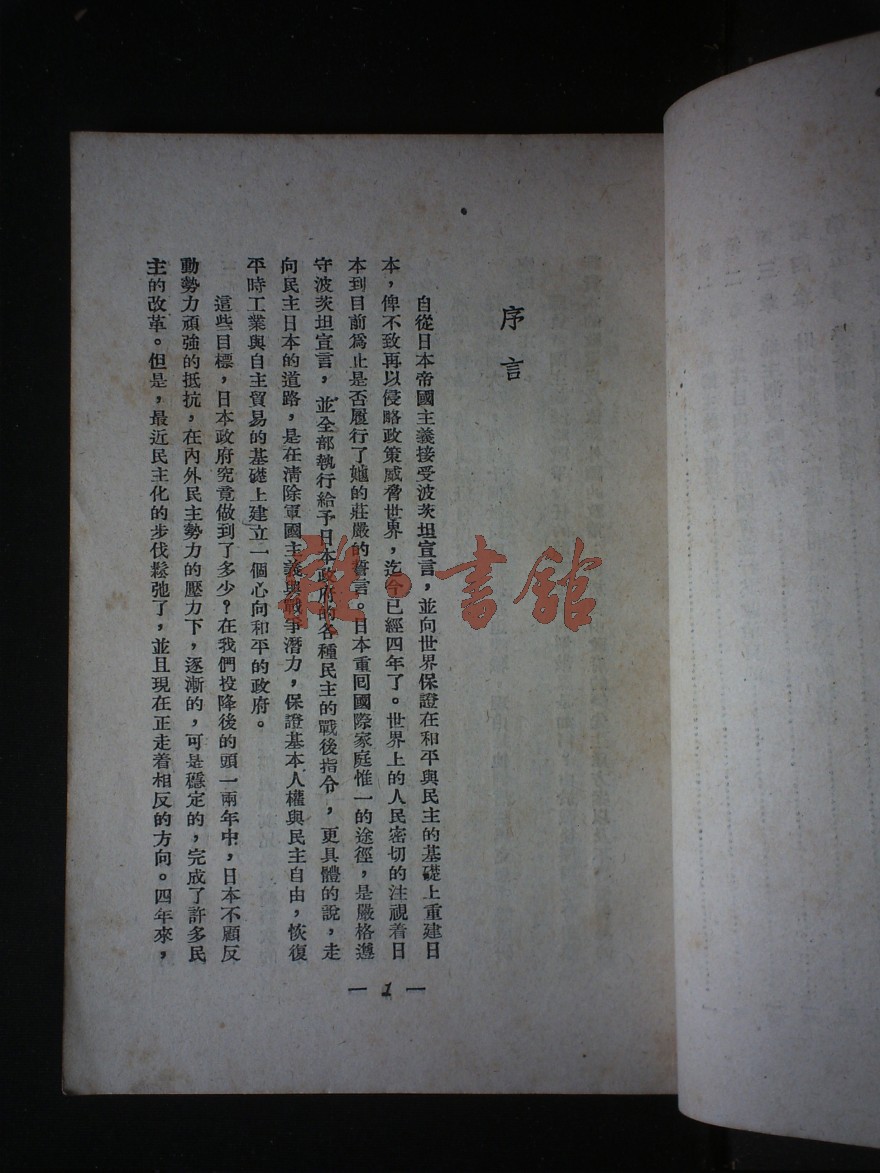 序言
自從日本帝國主義接受波茨坦宣言，並向世界保證在和平與民主的基礎上重建日
本，俾不致再以侵略政策威脅世界，迄今已經四年了。世界上的人民密切的注視着日
本到目前爲止是否履行了她的莊嚴的誓言。日本重囘國際家庭惟一的途徑，是嚴格遵
守波茨坦宣言，並全部執行給予日本政府的各種民主的戰後指令，更具體的說，走
向民主日本的道路，是在清除軍國主義與戰爭潛力，保證基本人權與民主自由，恢復
平時工業與自主貿易的基礎上建立一個心向和平的政府。
這些目標，日本政府究竟做到了多少？在我們投降後的頭一兩年中，日本不顧反
動勢力頑強的抵抗，在內外民主勢力的壓力下，逐漸的，可是穩定的，完成了許多民
主的改革。但是，最近民主化的步伐鬆弛了，並且現在正走着相反的方向。四年來，
— 1 —
雜·書館